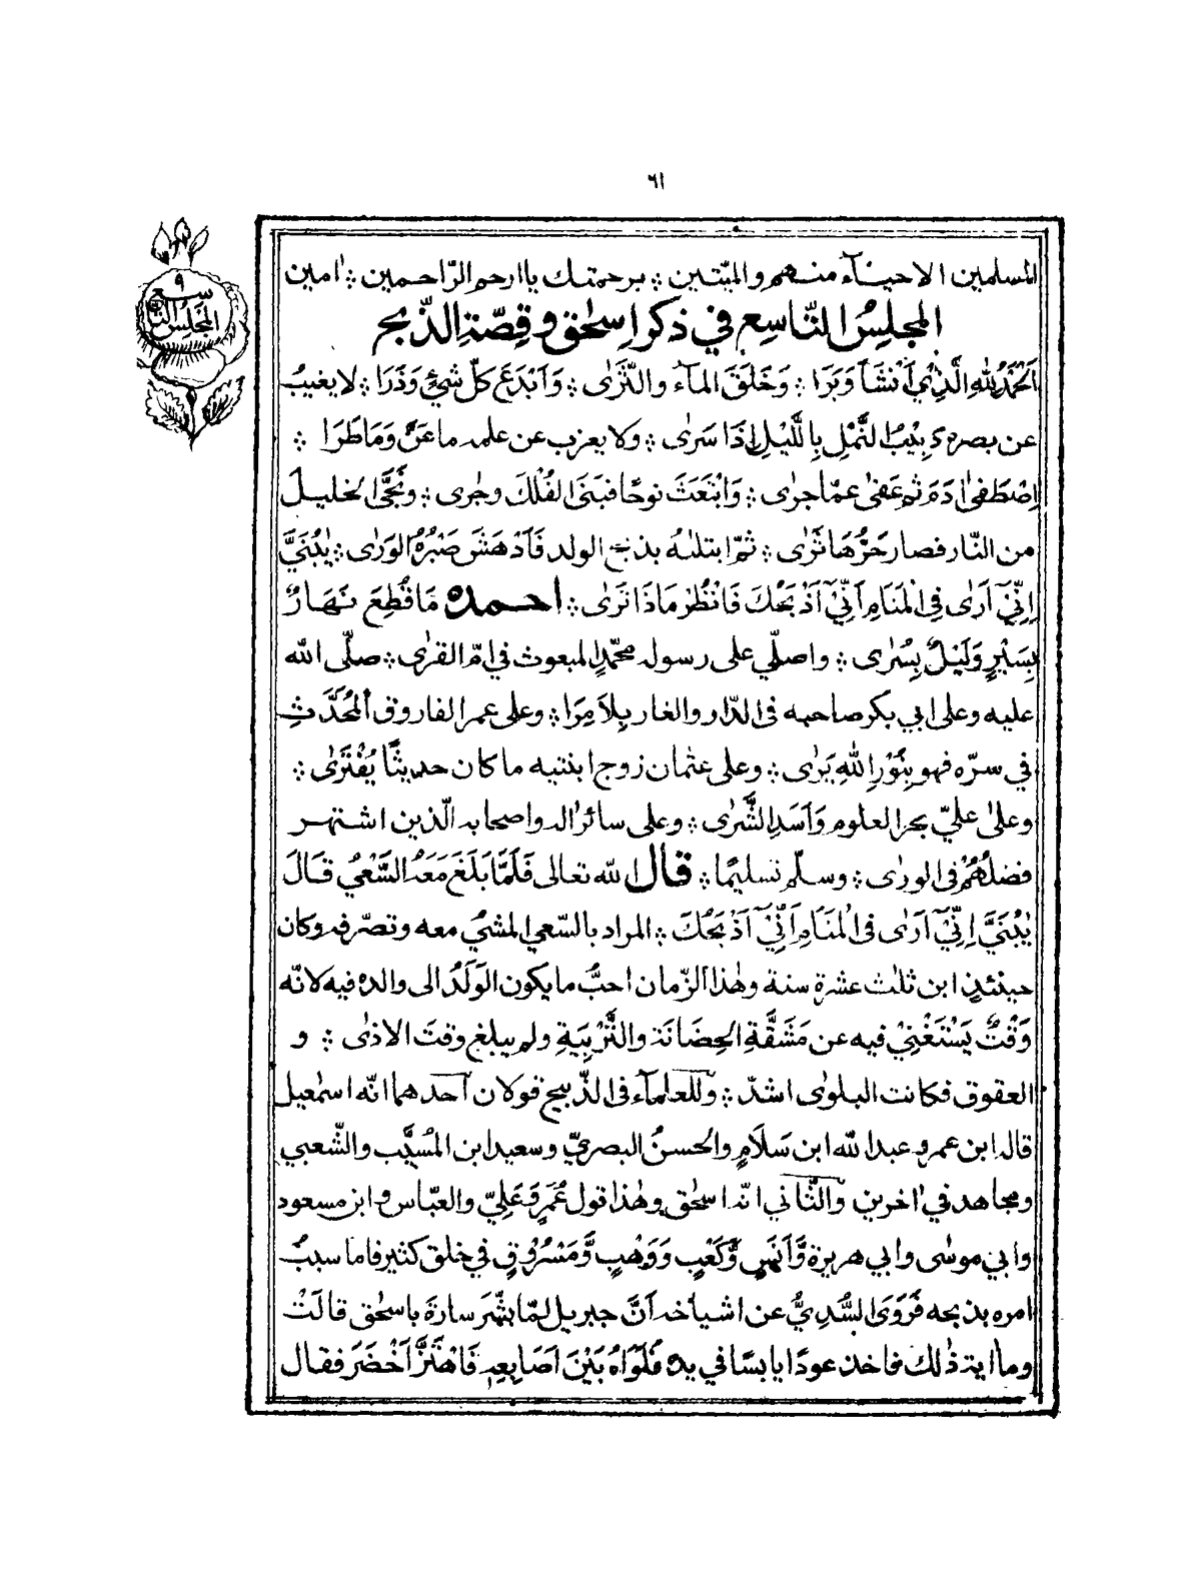 ٦١
٩
المجلس التاسع
المسلمين الاحيآء منهم والميّتين ؞ برحمتك ياارحم الرّاحمين ؞ امين
المجلِسُ التّاسِع في ذكر اِسحٰق وقِصّةِ الذّبح
اَلْحَمْدُ لِلّٰهِ الَّذِيْٓ اَنْشَأَ وَبَرَا ؞ وَخَلَقَ المآء والثَّرٰى ؞ وَاَبْدَعَ كلّ شيْءٍ وَذَرَا ؞ لا يغيبُ
عن بصره دَبِيْبُ النَّمْلِ بِاللَّيْلِ اِذَا سَرٰى ؞ ولا يعزب عن علمه ما عَنَّ وَمَا طَرَا ؞
اِصْطَفٰى اٰدَمَ ثم عَفٰى عمّا جرٰى ؞ وَابْتَعَثَ نوحًا فبَنَى الفُلْكَ وجرٰى ؞ ونَجَّى الخليلَ
من النّار فصار حَرُّهَا ثَرٰى ؞ ثمّ ابتلاهُ بذبح الولد فَاَدْهَشَ صَبْرُهُ الوَرٰى ؞ يٰبُنَيَّ
اِنِّيْٓ اَرٰى فِى الْمَنَامِ اَنِّيْٓ اَذْبَحُكَ فَانْظُرْ مَاذَا تَرٰى ؞ احمده مَا قُطِعَ نَهَارٌ
بِسَيْرٍ وَلَيْلٌ بِسُرٰى ؞ واصلّي على رسوله محمّدٍ المبعوث في امّ القرٰى ؞ صلّى الله
عليه وعلى ابي بكر صاحبه فى الدّار والغار بِلاَ مِرَا ؞ وعلى عمر الفاروق المُحَدَّثِ
في سرّه فهو بِنُوْرِ اللّٰهِ يَرٰى ؞ وعلى عثمان زوج ابنتيه ما كان حديثًا يُفْتَرٰى ؞
وعلىٰ عليّ بحر العلوم وَاَسَدِ الشَّرٰى ؞ وعلى سائر اله واصحابه الّذين اشتهر
فضلُهُمْ فى الورٰى ؞ وسلّم تسليمًا ؞ قال الله تعالى فَلَمَّا بَلَغَ مَعَهُ السَّعْيَ قَالَ
يٰبُنَيَّ اِنِّيْٓ اَرٰى فى الْمَنَامِ اَنِّيْٓ اَذْبَحُكَ ؞ المراد بالسّعي المشيُ معه وتصرّفه وكان
حينئذٍ ابن ثلٰث عشرة سنة وهٰذا الزّمان احبُّ ما يكون الوَلَدُ الى والده فيه لانّه
وَقْتٌ يَسْتَغْنِيْ فيه عن مَشَقَّةِ الحِضَانَة والتَّرْبِيَةِ ولم يبلغ وقتَ الاذٰى ؞ و
العقوق فكانت البلوٰى اشدّ ؞ وللعلمآء فى الذّبيح قولان احدهما انّه اسمٰعيل
قاله ابن عمر وعبد الله ابن سَلَامٍ والحسنُ البصريّ وسعيد ابن المُسَيَّب والشّعبي
ومجاهد في اٰخرين والثّاني انّه اسحٰق وهٰذا قول عُمَرَ وَعَلِيّ والعبّاس وابن مسعود
وابي موسٰى وابي هريرة وَّاَنَسٍ وَّكَعْبٍ وَوَهْبٍ وَّمَسْرُوْقٍ في خلق كثير فاما سببُ
امره بذبحه فَرَوَى السُّدِيُّ عن اشياخه اَنَّ جبريل لمّا بشّر سارةَ باسحٰق قالَتْ
وما اٰية ذٰلك فاخذ عودًا يابسًا في يده فَلَوَاهُ بَيْنَ اَصَابِعِه فَاهْتَزَّ اَخْضَرَ فقال